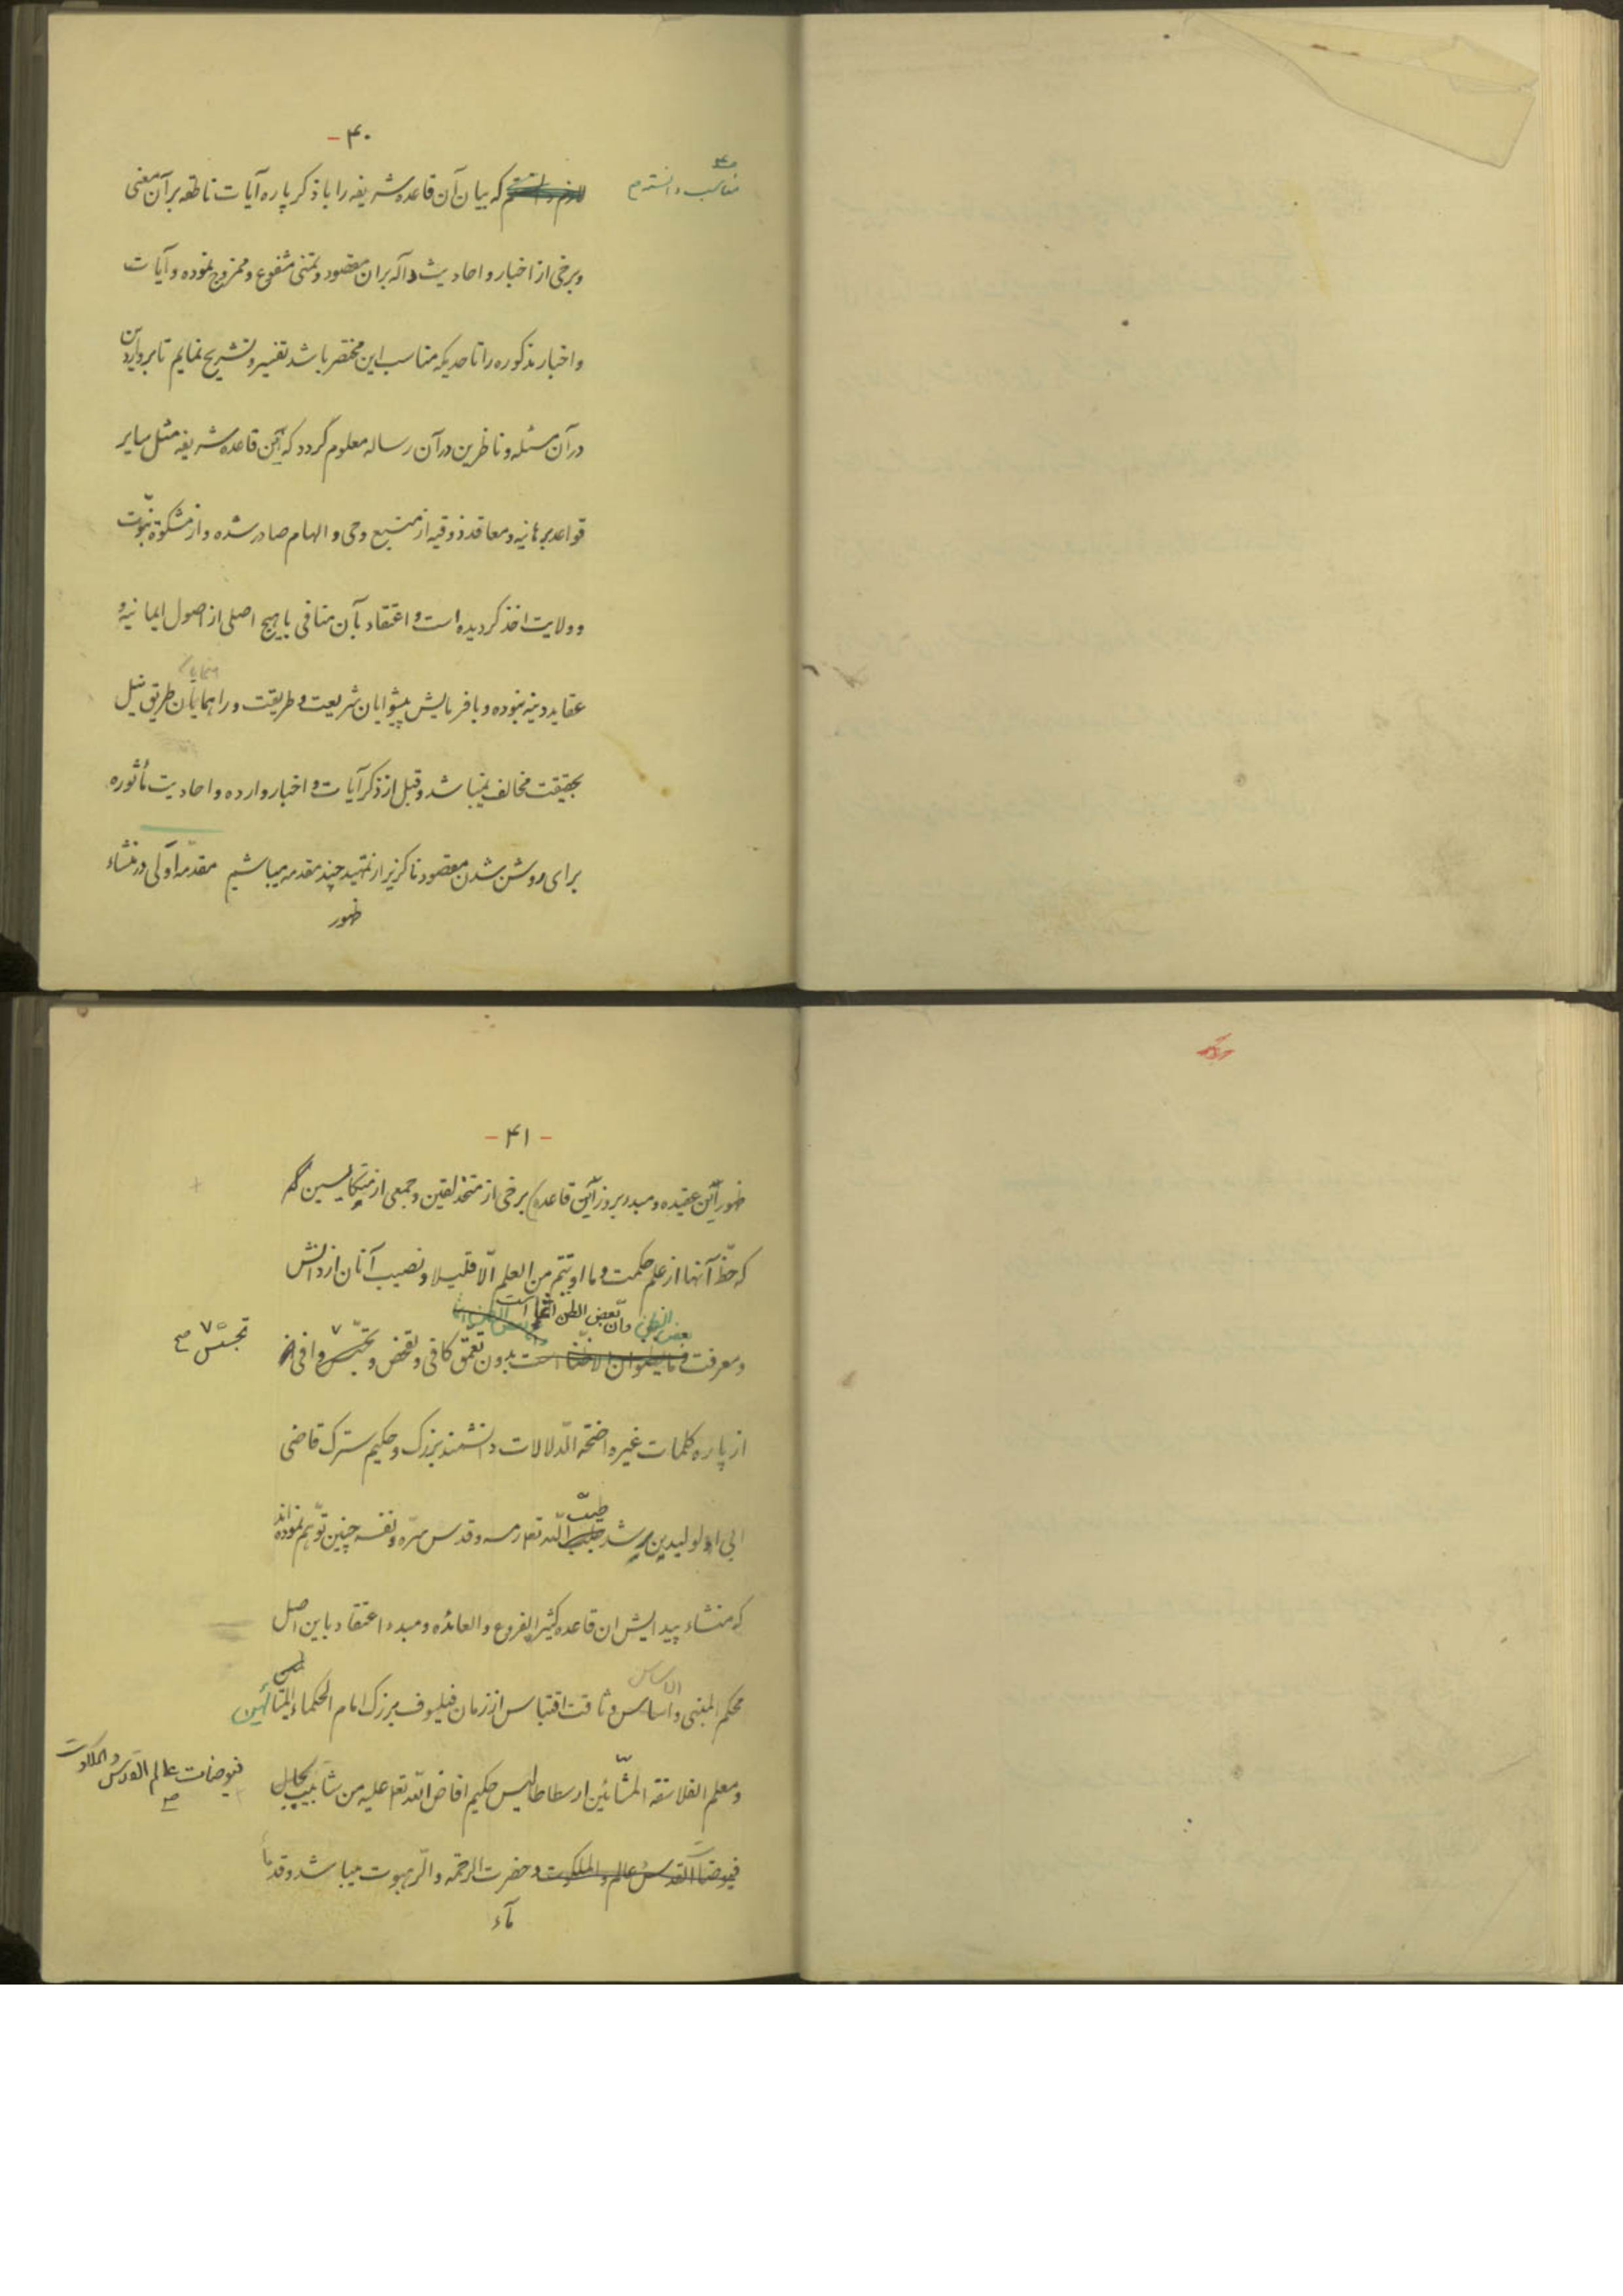 ۴۰ -
مناسب دانستم
لازم دانستم که بیان آن قاعده شریفه را با ذکر پاره آیات ناطقه بر آن معنی
و برخی از اخبار و احادیث داله بر ان مقصود و تمنی مشفوع و ممزوج نموده و آیات
و اخبار مذکوره را تا حدیکه مناسب این مختصر باشد تفسیر و تشریح نمایم تا بر واردین
در آن مسئله و ناظرین در آن رساله معلوم گردد که این قاعده شریفه مثل سایر
قواعد برهانیه و معاقد ذوقیه از منبع وحی و الهام صادر شده و از مشکوة نبّوت
و ولایت اخذ کردیده است و اعتقاد بآن منافی با هیچ اصلی از اصول ایمانیه و
عقاید دینیه نبوده و با فرمایش پیشوایان شریعت و طریقت و راهنمایان طریق نیل
بحقیقت مخالف نمیباشد و قبل از ذکر آیات و اخبار وارده و احادیث مأثوره
برای روشن شدن مقصود ناکزیر از تمهید چند مقدمه میباشیم مقدّمه اولی در منشاء
ظهور
- ۴۱ -
ظهور این عقیده و مبدء بروز این قاعده) برخی از متحذلقین و جمعی از متکایسین
که حظّ آنها از علم حکمت و ما اوتیتم من العلم الّا قلیلا و نصیب آنان از دانش
بعض الظن وانّ بعض الظن اثم است
و معرفت ان یظنون الا ظنّا است بدون تعمّق کافی و تفحّص و تجسّس وافی
تجسّس صح
از پاره کلمات غیر واضحة الدّلالات دانشمند بزرک و حکیم سترک قاضی
طیّب
ابی الولید بن رشد طیب اللّه تع رمسه و قدس سرّه و نفسه چنین توهّم نموده اند
که منشاء پیدایش ان قاعده کثیر الفروع و العائده و مبدء اعتقاد باین اصل
الاساس
محکم المبنی و اساس وثاقت اقتباس از زمان فیلسوف بزرک امام الحکماء المتألهین
و معلم الفلاسفه المشّائین ارسطاطالیس حکیم افاض اللّه تع علیه من شآبیب
فیوضات عالم القدس و الملکوت صح
فیوضات القدس عالم و الملکوت و حضرت الرحمة و الرّهبوت میباشد و قد
مآء